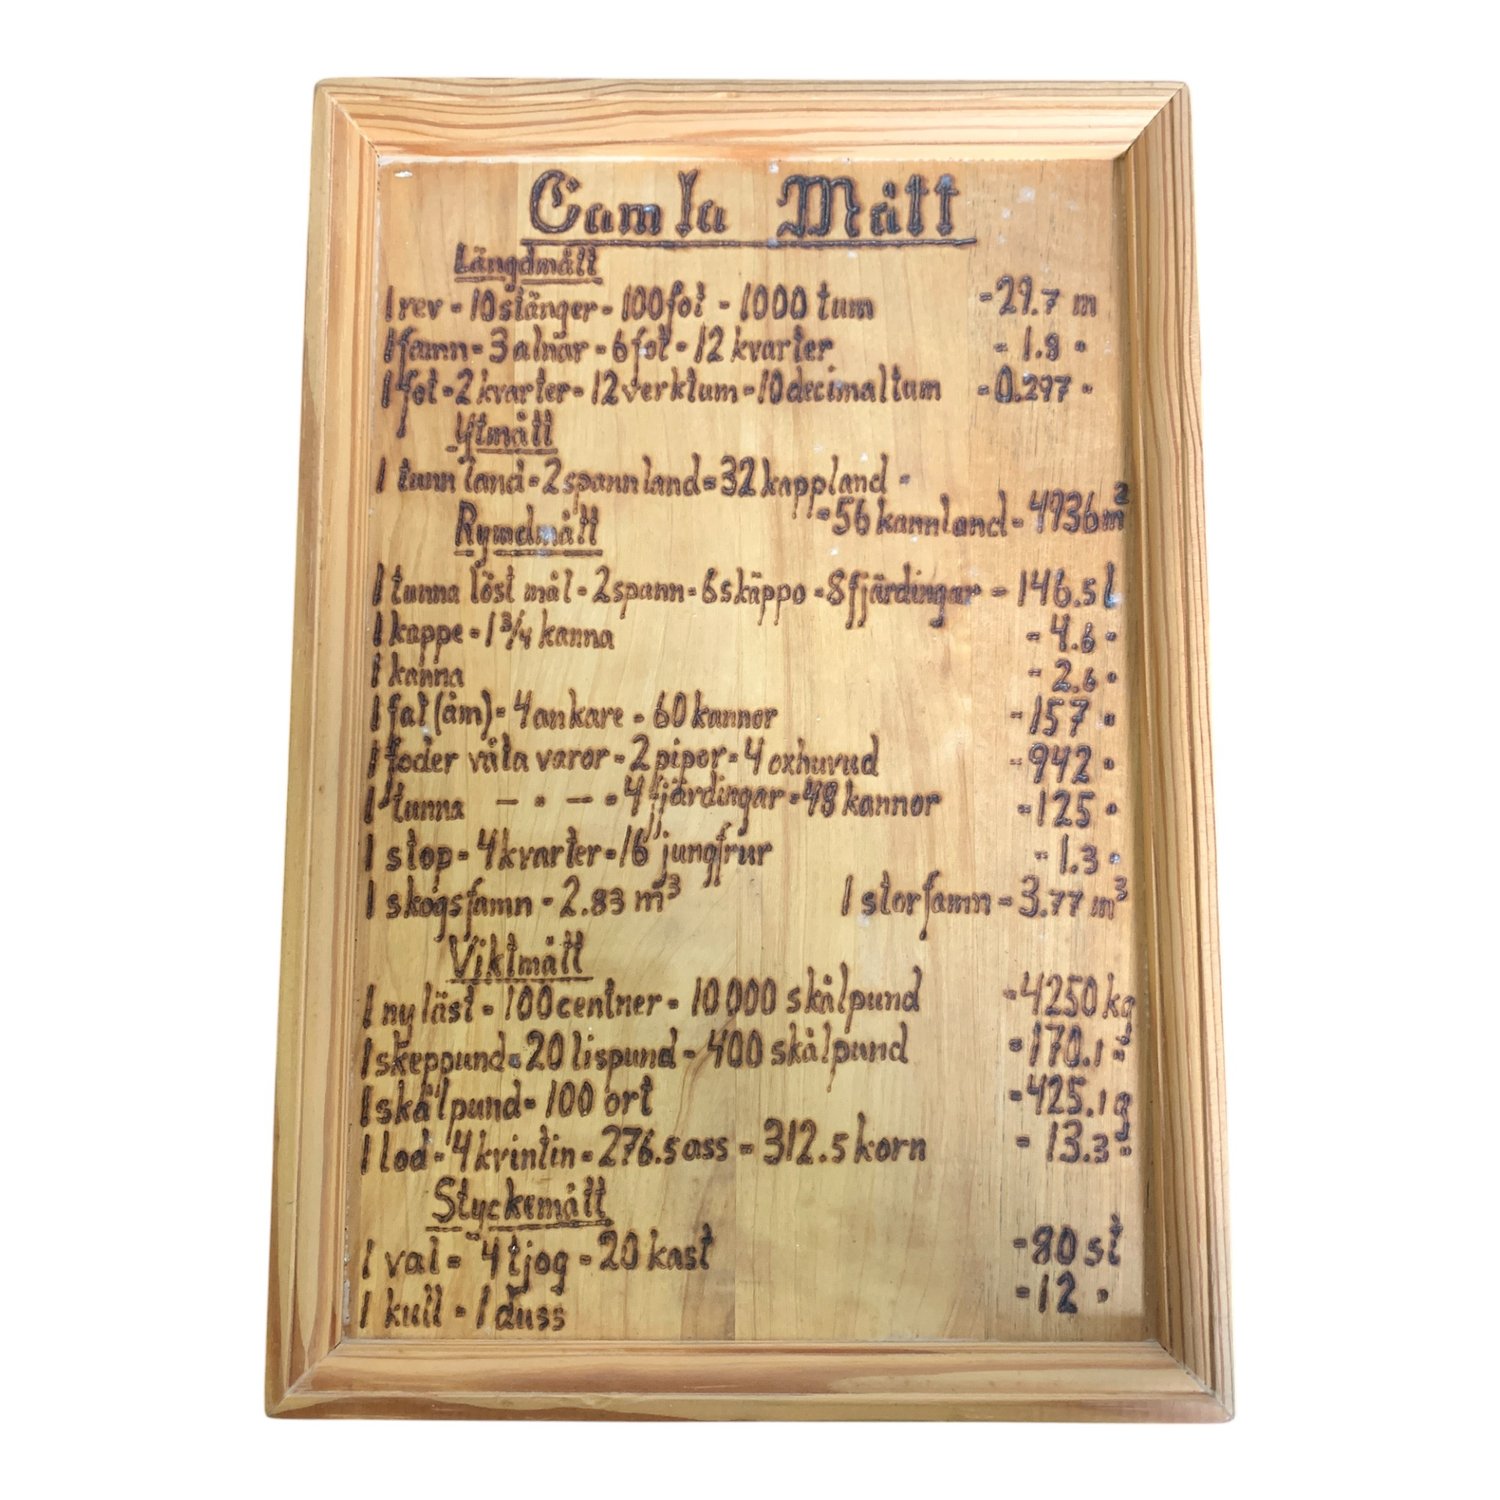 Gamla Mått
Längdmått
1 rev - 10 stänger - 100 fot - 1000 tum - 29.7 m
1 famn - 3 alnar - 6 fot - 12 kvarter - 1.8 "
1 fot - 2 kvarter - 12 verktum - 10 decimaltum - 0.297 "
Ytmått
1 tunnland - 2 spannland - 32 kappland -
- 56 kannland - 4936 m²
Rymdmått
1 tunna löst mål - 2 spann - 6 skäppo - 8 fjärdingar - 146.5 l
1 kappe - 1 3/4 kanna - 4.6 "
1 kanna - 2.6 "
1 fat (åm) - 4 ankare - 60 kannor - 157 "
1 foder våta varor - 2 pipor - 4 oxhuvud - 942 "
1 tunna — " — - 4 fjärdingar - 48 kannor - 125 "
1 stop - 4 kvarter - 16 jungfrur - 1.3 "
1 skogsfamn - 2.83 m³ 1 storfamn - 3.77 m³
Viktmått
1 ny läst - 100 centner - 10 000 skålpund - 4250 kg
1 skeppund - 20 lispund - 400 skålpund - 170.1 "
1 skålpund - 100 ort - 425.1 g
1 lod - 4 kvintin - 276.5 ass - 312.5 korn - 13.3 "
Styckemått
1 val - 4 tjog - 20 kast - 80 st
1 kull - 1 duss - 12 "